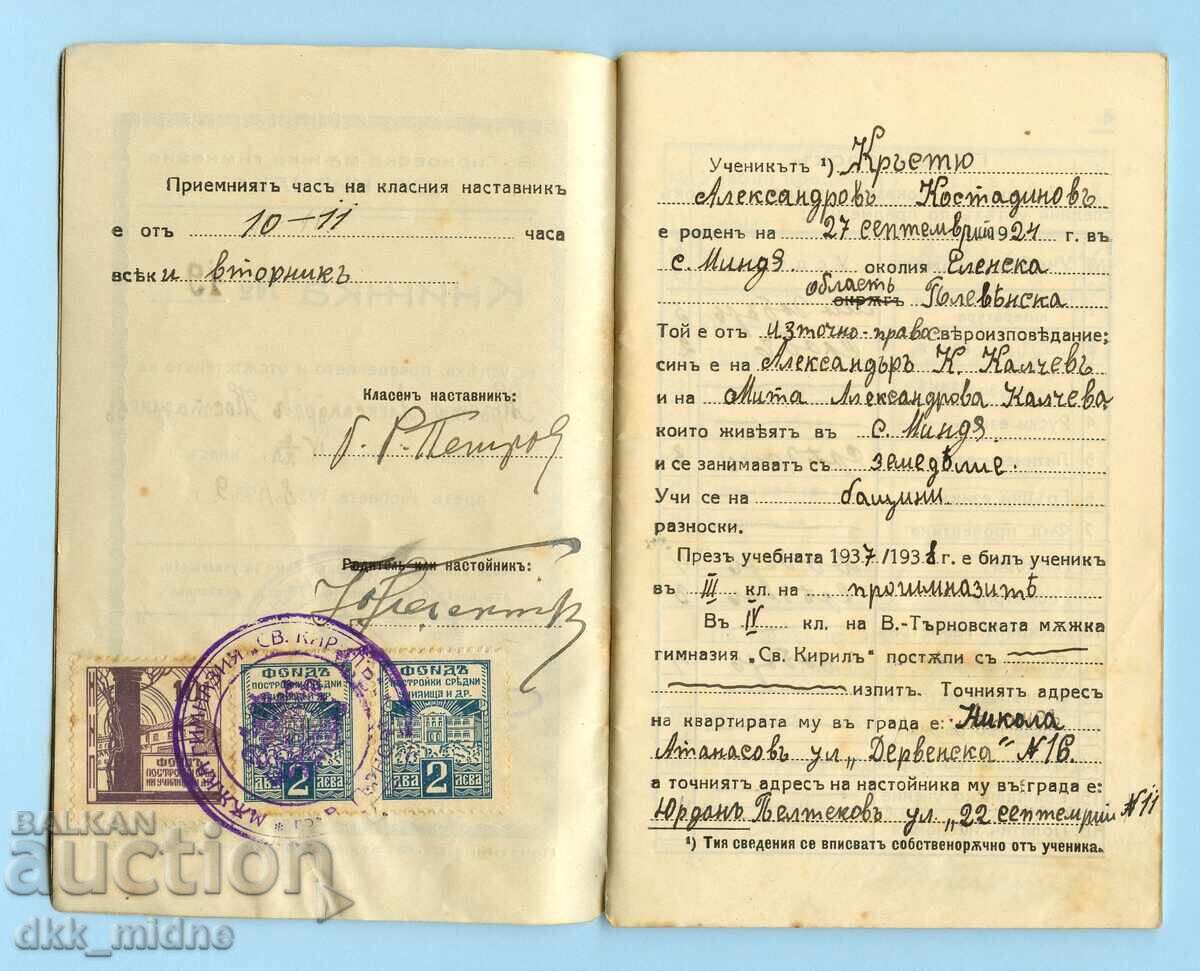 Приемниятъ часъ на класния наставникъ
е отъ 10-11 часа
всѣки вторникъ
Класенъ наставникъ:
Родитель или настойникъ:
ФОНДЪ
ПОСТРОЙКИ СРѢДНИ
УЧИЛИЩА И ДР.
ДВА 2 ЛЕВА
ФОНДЪ
ПОСТРОЙКИ СРѢДНИ
УЧИЛИЩА И ДР.
ДВА 2 ЛЕВА
ФОНДЪ
МѪЖКА ГИМНАЗИЯ „СВ. КИРИЛЪ“
BALKAN
auction
dkk_midne
Ученикътъ ¹) Кръстю
Александровъ Костадиновъ
е роденъ на 27 септемврий 1924 г. въ
с. Миндя. околия Еленска
область
окрѫгъ Плевѣнска
Той е отъ източно-правос вѣроизповѣдание;
синъ е на Александъръ К. Калчевъ
и на Мита Александрова Калчева
които живѣятъ въ с. Миндя.
и се занимаватъ съ земедѣлие.
Учи се на бащини
разноски.
Презъ учебната 1937/1938 г. е билъ ученик
въ III кл. на прогимназитѣ
Въ IV кл. на В.-Търновската мѫжка
гимназия „Св. Кирилъ“ постѫпи съ
изпит. Точният адресъ
на квартирата му въ града е: Никола
Атанасовъ ул „Дервенска“ № 16.
а точниятъ адресъ на настойника му въ града е:
Юрданъ Пелтековъ ул. „22 септемврий № 11
¹) Тия сведения се вписватъ собственорѫчно отъ ученика.